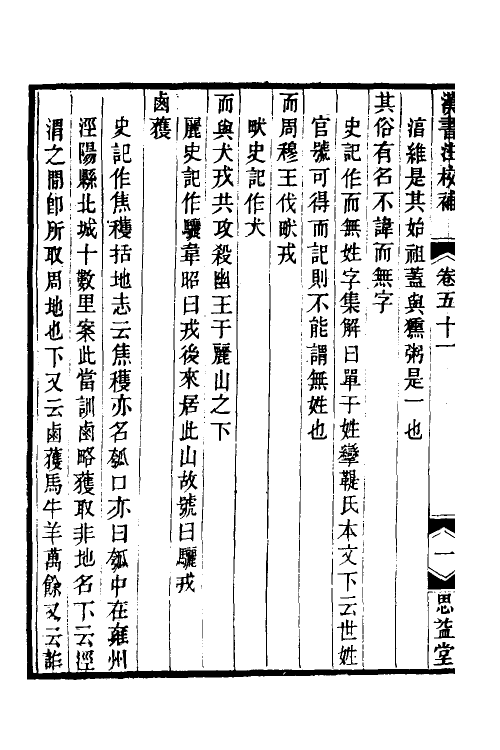 漢書注校補
卷五十一
一
思益堂
湻維是其始祖葢與獯粥是一也
其俗有名不諱而無字
史記作而無姓字集解曰單于姓攣鞮氏本文下云世姓
官號可得而記則不能謂無姓也
而周穆王伐畎戎
畎史記作犬
而與犬戎共攻殺幽王于麗山之下
麗史記作驪韋昭曰戎後來居此山故號曰驪戎
鹵穫
史記作焦穫括地志云焦穫亦名瓠口亦曰瓠中在雍州
涇陽縣北城十數里案此當訓鹵略獲取非地名下云涇
渭之閒卽所取周地也下又云鹵獲馬牛羊萬餘又云詐